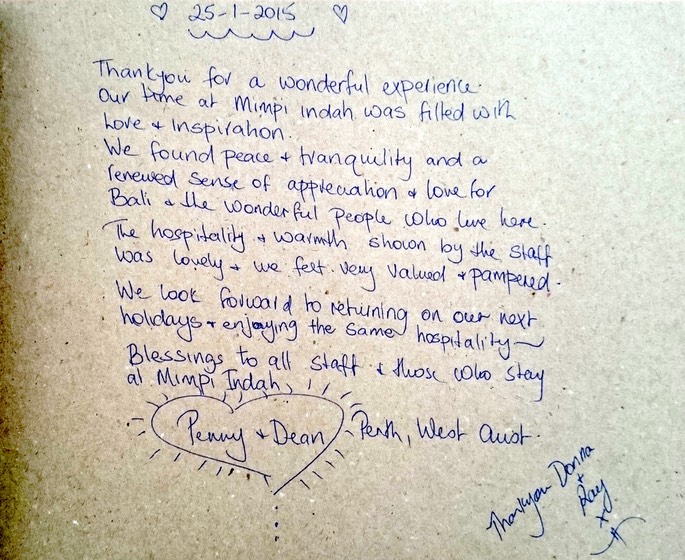 ♡ 25-1-2015 ♡
Thankyou for a wonderful experience.
Our time at Mimpi Indah was filled with
Love + Inspiration.
We found peace + tranquility and a
renewed sense of appreciation & love for
Bali & the wonderful people who live here.
The hospitality & warmth shown by the staff
was lovely + we felt very valued + pampered.
We look forward to returning on our next
holidays + enjoying the same hospitality
Blessings to all staff & those who stay
at Mimpi Indah,
Penny + Dean Perth, West Aust.
Thankyou Donna
+
Ray
x